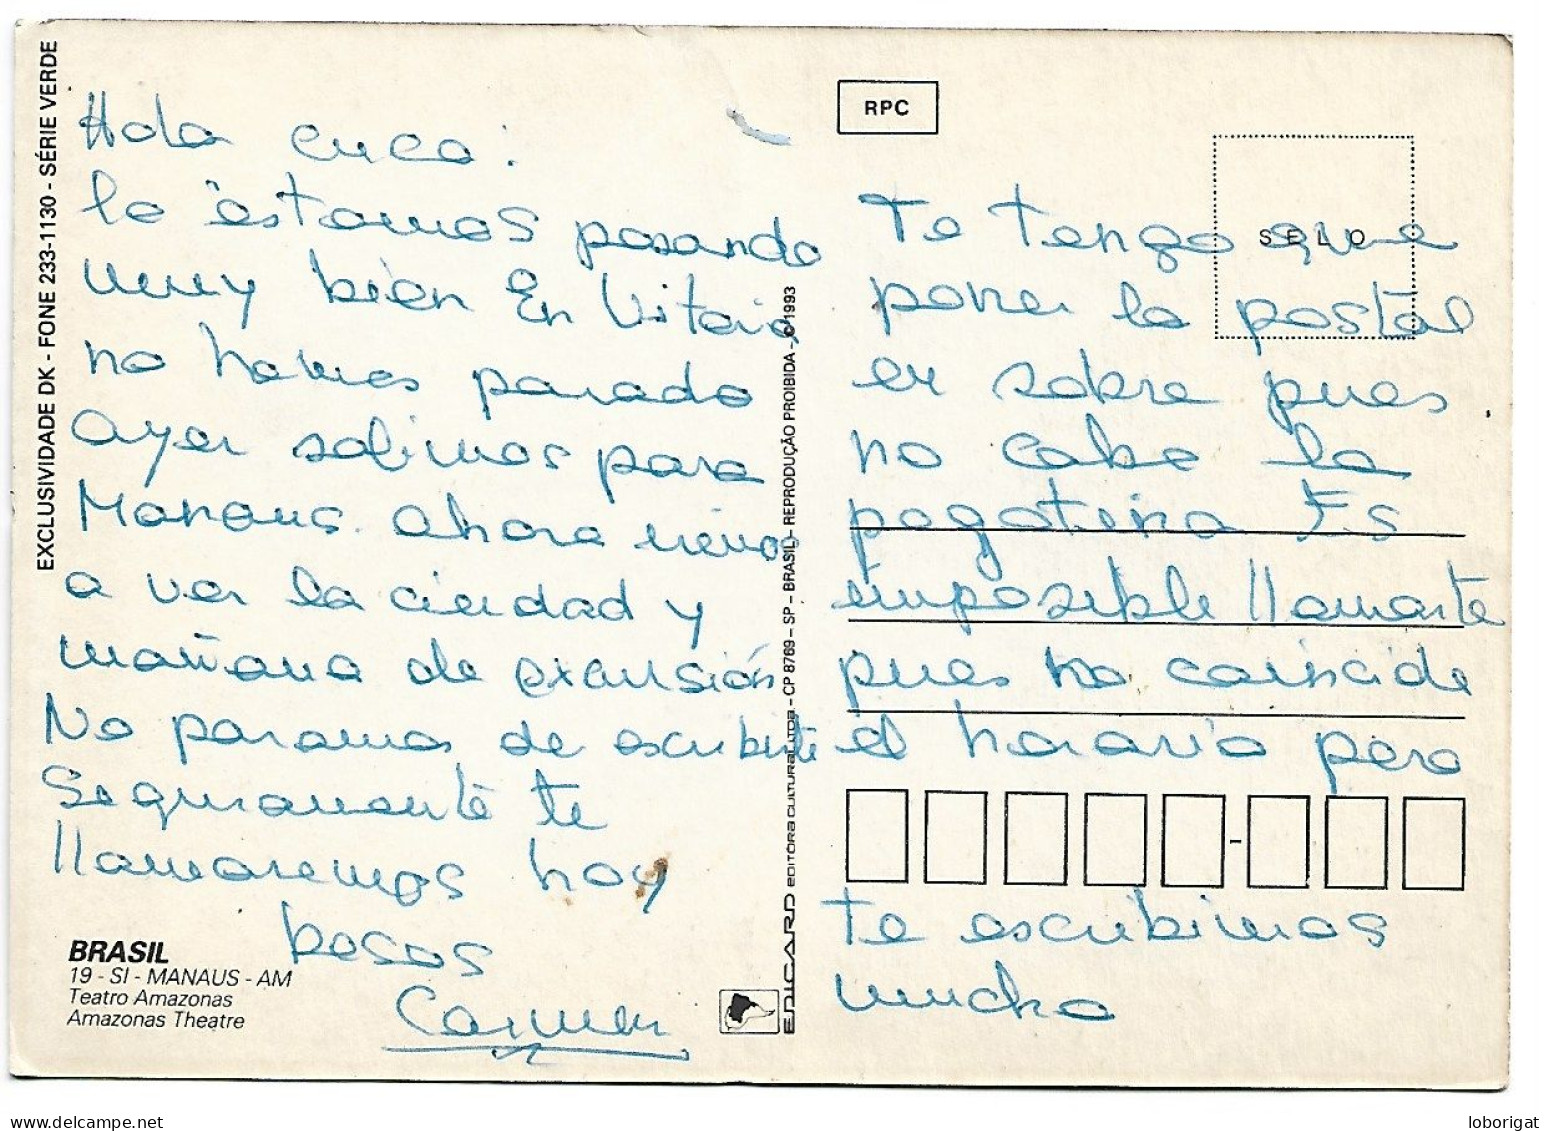 EXCLUSIVIDADE DK - FONE 233-1130 - SÉRIE VERDE
Hola cuca:
lo estamos pasando
muy bien En Vitoria
no hemos parado
Ayer salimos para
Manaus. ahora vamos
a ver la ciudad y
mañana de excursión
No paramos de escribirte
Seguramente te
llamaremos hoy
besos
Carmen
BRASIL
19 - SI - MANAUS - AM
Teatro Amazonas
Amazonas Theatre
EDICARD EDITORA CULTURAL LTDA - CP 8769 - SP - BRASIL - REPRODUÇÃO PROIBIDA - © 1993
RPC
SELO
Te tengo que
poner la postal
en sobre pues
no cabe la
pegatina Es
imposible llamarte
pues no coincide
el horario pero
te escribimos
mucho
loborigat